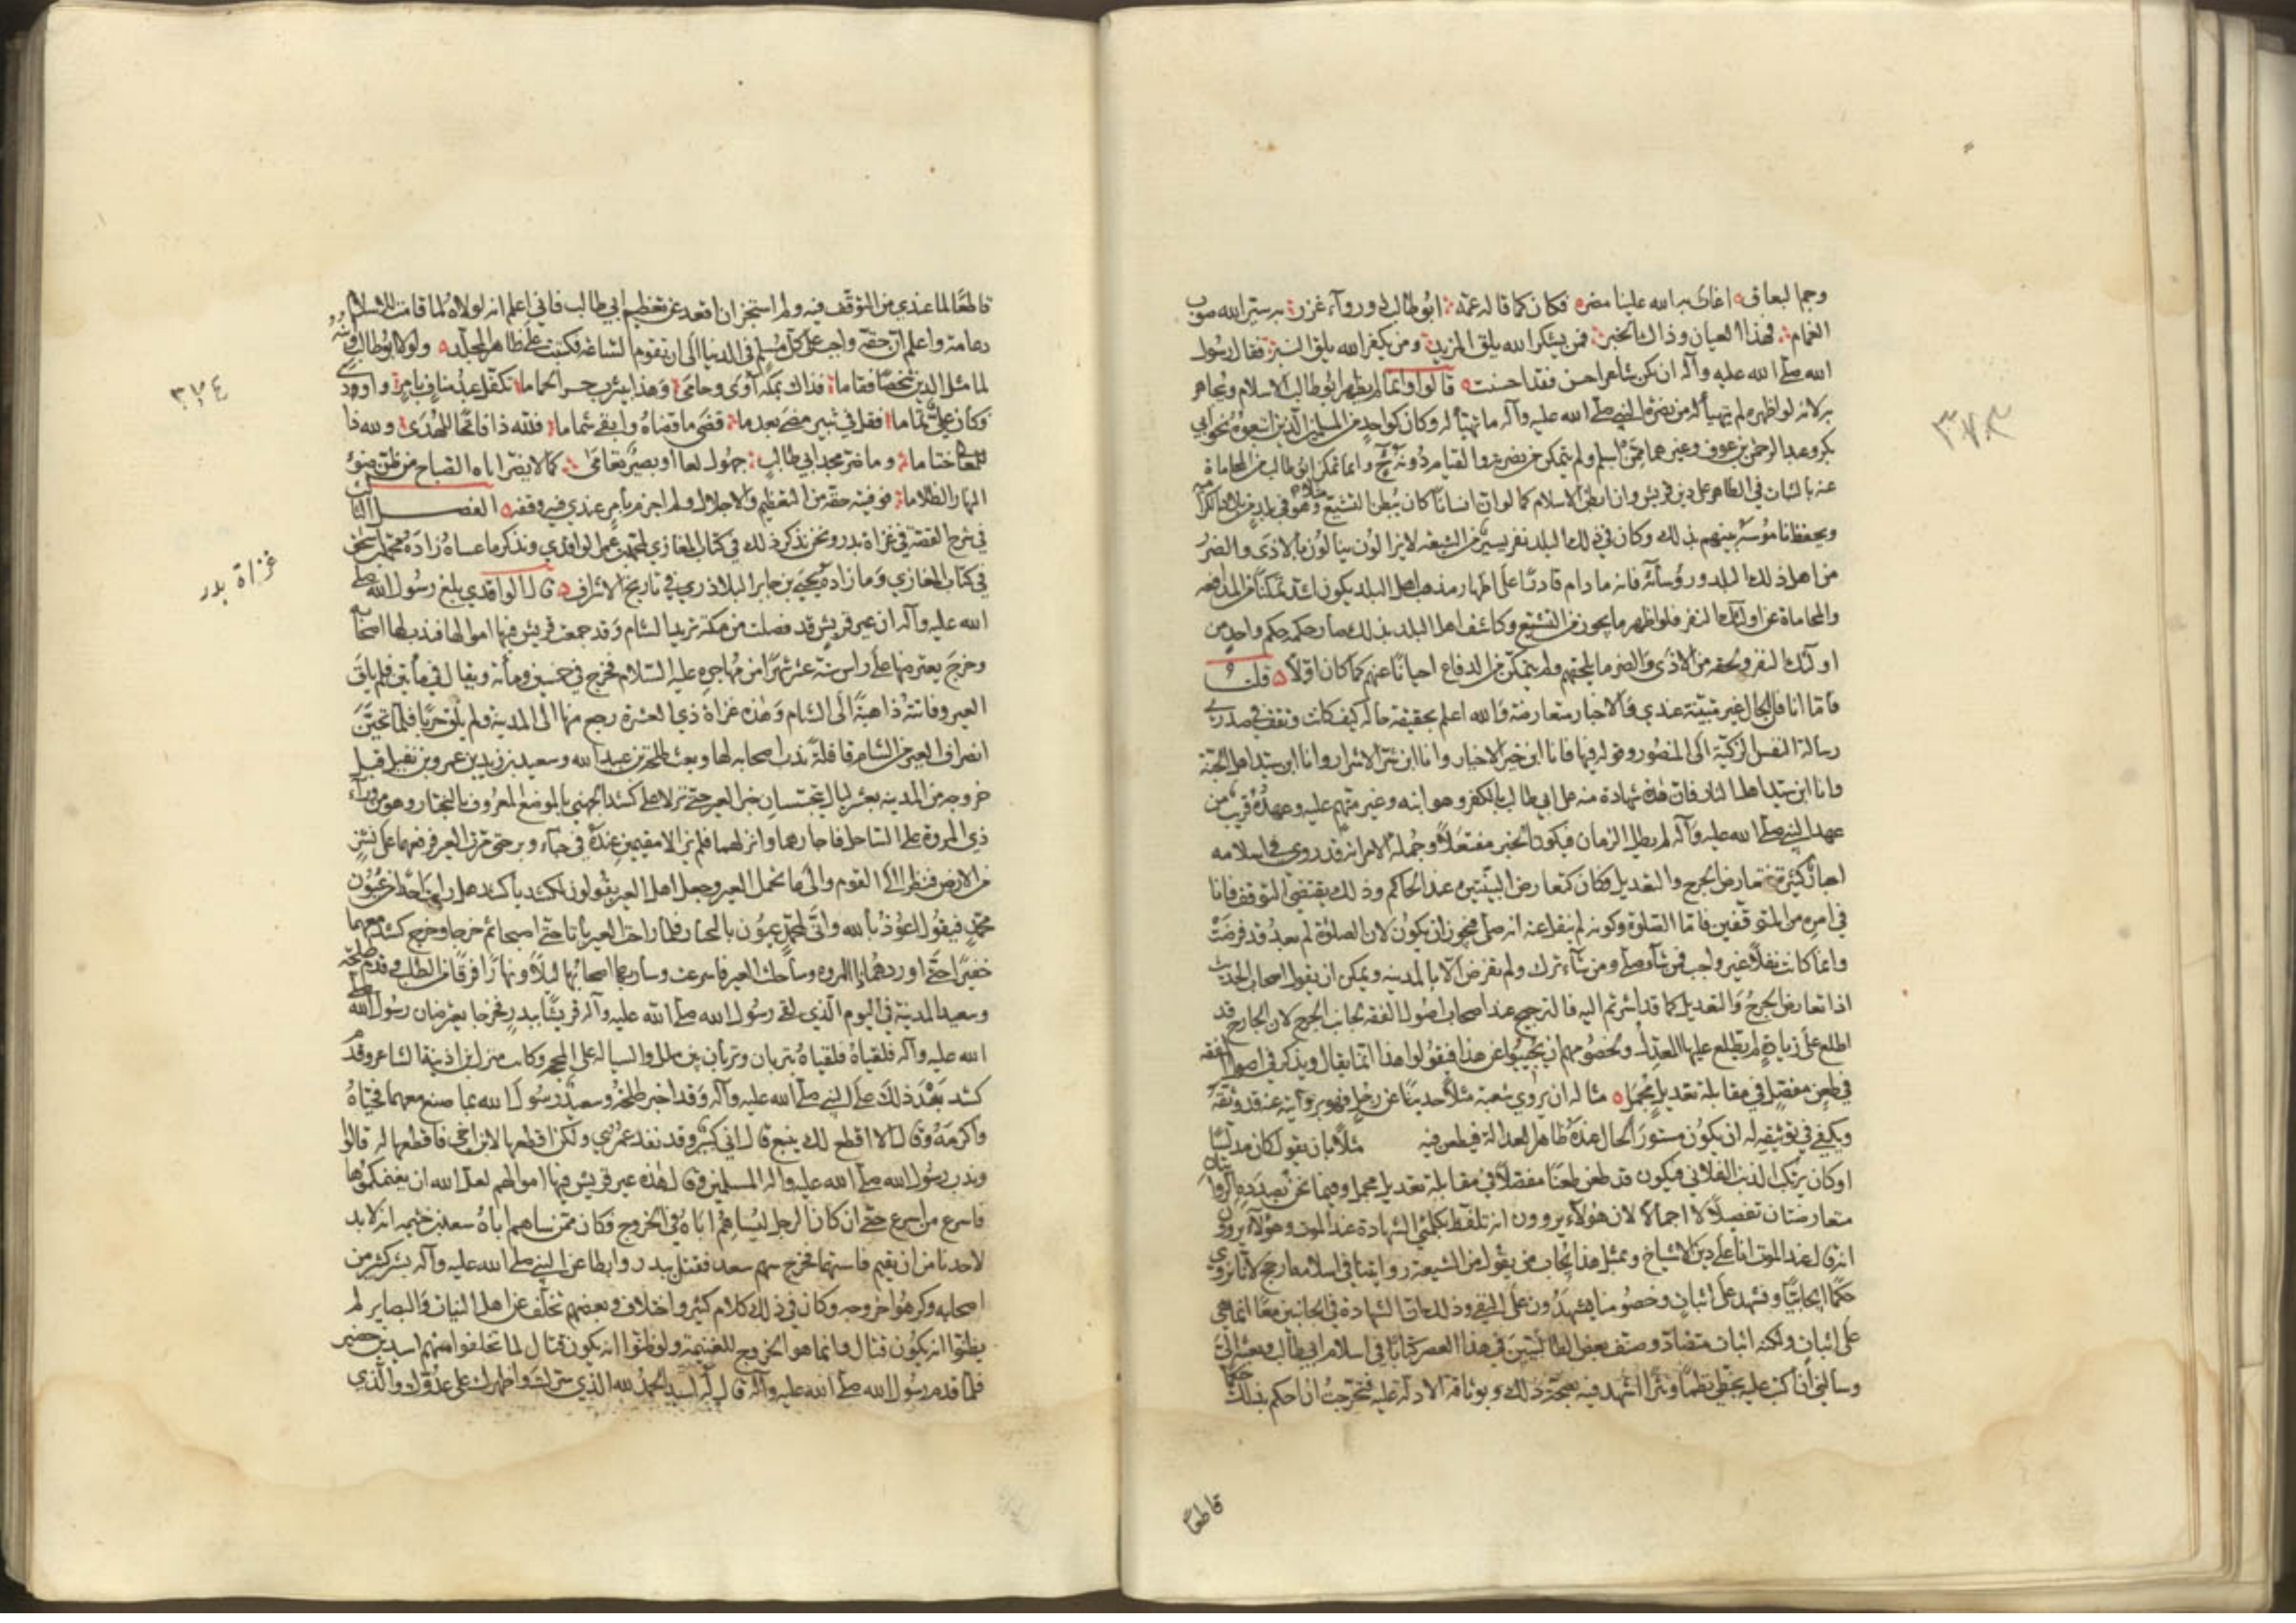 ٣٧٣
وجم البعاق اغاث به الله عليا مضر فكان كما قاله عمه ابو طالب ذو روآء غزر به يسر الله صوب
الغمام فهذا العيان وذاك الخبر فمن يشكر الله يلق المزيد ومن يكفر الله يلق الغير فقال رسول
الله صلى الله عليه وآله ان يكن شاعر احسن فقد احسنت قالوا وانما لم يظهر ابو طالب الاسلام ويجاهر
به لانه لو اظهره لم يتهيأ له من نصرة النبي صلى الله عليه وآله ما تهيأ له وكان كواحد من المسلمين الذين اتبعوه نحو ابي
بكر وعبد الرحمن بن عوف وغيرهما ممن اسلم ولم يتمكن من نصرته والقيام دونه ح وانما تمكن ابو طالب من المحاماة
عنه بالثبات في الظاهر على دين قريش وان ابطن الاسلام كما لو ان انسانا كان يبطن التشيع مثلا وهو في بلد من بلاد الكرامية
ويحفظ ناموسه بينهم بذلك وكان في ذلك البلد نفر يسير من الشيعة لا يزالون ينالون بالاذى والضرر
من اهل ذلك البلد ورؤسائه فانه ما دام قادرا على اظهار مذهب اهل البلد يكون اشد تمكنا من المدافعة
والمحاماة عن اولئك النفر فلو اظهر ما يجوز من التشيع وكاشف اهل البلد بذلك صار حكمه حكم واحد من
اولئك النفر ولحقه من الاذى والضرر ما يلحقهم ولم يتمكن من الدفاع احيانا عنهم كما كان اولا قلت
فاما انا فان الحال غير متبينة عندي والاخبار متعارضة والله اعلم بحقيقة حاله كيف كانت وتقف في صدري
رسالة النفس الزكية الى المنصور وقوله فيها فانا ابن خير الاخيار وانا ابن شر الاشرار وانا ابن سيد اهل الجنة
وانا ابن سيد اهل النار فان هذه شهادة منه على ابي طالب بالكفر وهو ابنه وغير متهم عليه وعهده قريب من
عهد النبي صلى الله عليه وآله لم يطل الزمان فيكون الخبر مفتعلا وجملة الامر انه قد روي في اسلامه
اخبار كثيرة تتعارض الجرح والتعديل فكان كتعارض البينتين عند الحاكم وذلك يقتضي التوقف فانا
في امره من المتوقفين فاما الصلوة وكونه لم ينقل عنه انه صلى فيجوز ان يكون لان الصلوة لم تعد قد فرضت
وانما كانت نفلا غير واجب فمن شآء صلى ومن شآء ترك ولم تفرض الا بالمدينة ويمكن ان يقول اصحاب الحديث
اذا تعارض الجرح والتعديل كما قد اشرتم اليه فالترجيح عند اصحاب اصول الفقه لجانب الجرح لان الجارح قد
اطلع على زيادة لم يطلع عليها المعدل ولخصومهم ان يجيبوا عن هذا فيقولوا هذا انما يقال ويذكر في اصول الفقه
في طعن مفصل في مقابلة تعديل مجمل مثاله ان يروي شعبة مثلا حديثا عن رجل فهو بروايته عنه قد وثقه
ويكفي في توثيقه له ان يكون مستور الحال عنده ظاهر العدالة فيطعن فيه مثلا بان يقول كان مدلسا
او كان يرتكب الذنب الفلاني فيكون قد طعن طعنا مفصلا في مقابلة تعديل مجمل وفيما نحن بصدده الروايتان
متعارضتان تفصيلا لا اجمالا لان هؤلآء يروون انه تلفظ بكلمتي الشهادة عند الموت وهؤلآء يروون
انه قال عند الموت انا على دين الاشياخ وبمثل هذا يجاب من يقول من الشيعة روايتنا في اسلامه ارجح لانا نروي
حكما ايجابيا ونشهد على اثبات وخصومنا يشهدون على النفي وذلك ان الشهادة في الجانبين معا انما هي
على اثبات ولكنه اثبات متضاد وصنف بعض الطالبيين في هذا العصر كتابا في اسلام ابي طالب وبعثه الي
وسألني ان اكتب عليه بخطي نظما او نثرا اشهد فيه بصحة ذلك وبوثاقة الادلة عليه فتحرجت ان احكم بذلك حكما
قاطعا
٣٧٤
قاطعا لما عندي من التوقف فيه ولم استجز ان اقعد عن تعظيم ابي طالب فاني اعلم انه لولاه لما قامت للاسلام
دعامة واعلم ان حقه واجب على كل مسلم في الدنيا الى ان تقوم الساعة فكتبت على ظاهر المجلد ولولا ابو طالب وابنه
لما مثل الدين شخصا فقاما فذاك بمكة آوى وحامى وهذا بيثرب جس الحماما تكفل عبد مناف بامر واودى
فكان علي تماما فقل في ثبير مضى بعد ما قضى ما قضاه وابقى شماما فلله ذا فاتحا للهدى ولله ذا
للمعالي ختاما وما ضر مجد ابي طالب جهول لغا او بصير تعامى كما لا يضر اياه الصباح من ظن ضوء
النهار الظلاما فوفيته حقه من التعظيم والاجلال ولم اجزم بامر عندي فيه وقفة الفصل الثالث
في شرح القصة في غزاة بدر ونحن نذكر ذلك في كتاب المغازي لمحمد بن عمر الواقدي ونذكر ما عساه زاده محمد بن اسحق
في كتاب المغازي وما زاده يحيى بن جابر البلاذري في تاريخ الاشراف قال الواقدي بلغ رسول الله صلى
الله عليه وآله ان عير قريش قد فصلت من مكة تريد الشام وقد جمعت قريش فيها اموالها فندب لها اصحابه
وخرج يعترضها على راس ستة عشر شهرا من مهاجره عليه السلام فخرج في خمسين ومأئة ويقال في مأتين فلم يلق
العير وفاتته ذاهبة الى الشام وهذه غزاة ذي العشيرة رجع منها الى المدينة ولم يلق حربا فلما تحين
انصراف العير من الشام قافلة ندب اصحابه لها وبعث طلحة بن عبيد الله وسعيد بن زيد بن عمرو بن نفيل قبل
خروجه من المدينة بعشر ليال يتجسسان خبر العير حتى نزلا على كشد الجهني بالموضع المعروف بالنخبار وهو من ورآء
ذي المروة على الساحل فاجارهما وانزلهما فلم يزالا مقيمين عنده في خباء وبر حتى مرت العير فرفعهما على نشز
من الارض فنظرا الى القوم والى ما تحمل العير وجعل اهل العير يقولون لكشد يا كشد هل رايت احدا من عيون
محمد فيقول اعوذ بالله وانى لمحمد عيون بالنخبار فلما راحت العير باتا حتى اصبحا ثم خرجا وخرج كشد معهما
خفيرا حتى اوردهما ذا المروة وساحلت العير فاسرعت وسار بها اصحابها ليلا ونهارا فرقا من الطلب وقدم طلحة
وسعيد المدينة في اليوم الذي لقي رسول الله صلى الله عليه وآله قريشا ببدر فخرجا يعترضان رسول الله صلى
الله عليه وآله فلقياه فلقياه بتربان وتربان بين ملل والسيالة على المحجة وكانت منزل ابن اذينة الشاعر وقدم
كشد بعد ذلك على النبي صلى الله عليه وآله وقد اخبر طلحة وسعيد رسول الله بما صنع معهما فحياه
واكرمه وقال الا اقطع لك ينبع قال اني كبير وقد نفد عمري ولكن اقطعها لابن اخي فاقطعها له قالوا
وندب رسول الله صلى الله عليه وآله المسلمين وقال هذه عير قريش فيها اموالهم لعل الله ان يغنمكموها
فاسرع من اسرع حتى ان كان الرجل ليساهم اباه في الخروج فكان ممن ساهم اباه سعد بن خيثمة انه لا بد
لاحدنا من ان يقيم فاستهما فخرج سهم سعد فقتل ببدر وابطا عن النبي صلى الله عليه وآله بشر كثير من
اصحابه وكرهوا خروجه وكان في ذلك كلام كثير واختلاف وبعضهم تخلف عن اهل النيات والبصاير لم
يظنوا انه يكون قتال وانما هو الخروج للغنيمة ولو ظنوا انه يكون قتال لما تخلفوا منهم اسيد بن حضير
فلما قدم رسول الله صلى الله عليه وآله قال له اسيد الحمد لله الذي سرك واظهرك على عدوك والذي
غزاة بدر